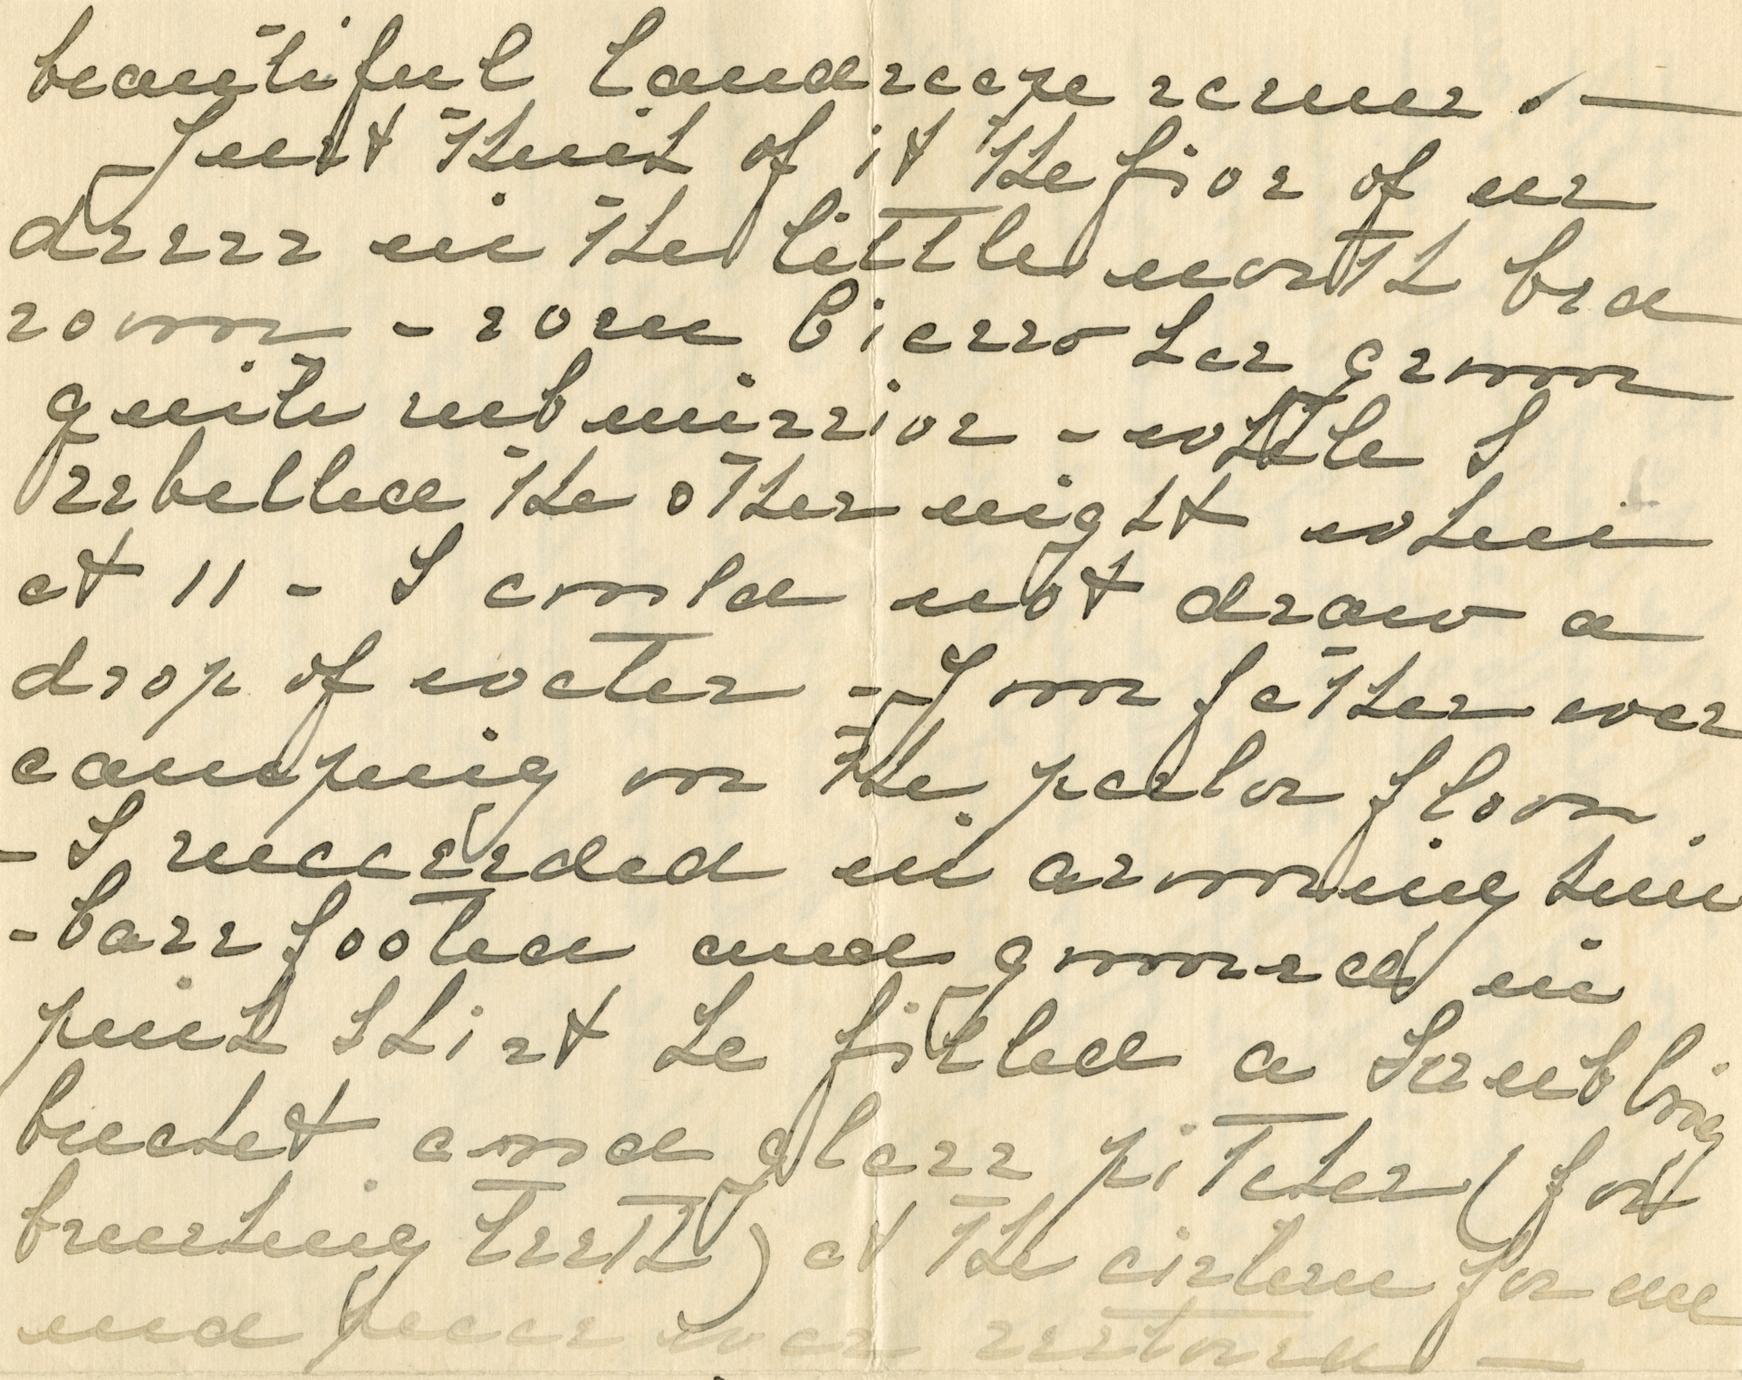 beautiful landscape scenes. —
Just think of it the five of us
dress in the little north bed
room - has grown
quite submissive - while I
rebelled the other night when
at 11 - I could not draw a
drop of water - Your father was
camping on the parlor floor.
- I succeeded in arousing him
- bare footed and gowned in
pink shirt he filled a scrubbing
bucket and glass pitcher (for
brushing teeth) at the cistern for me
and peace was restored —